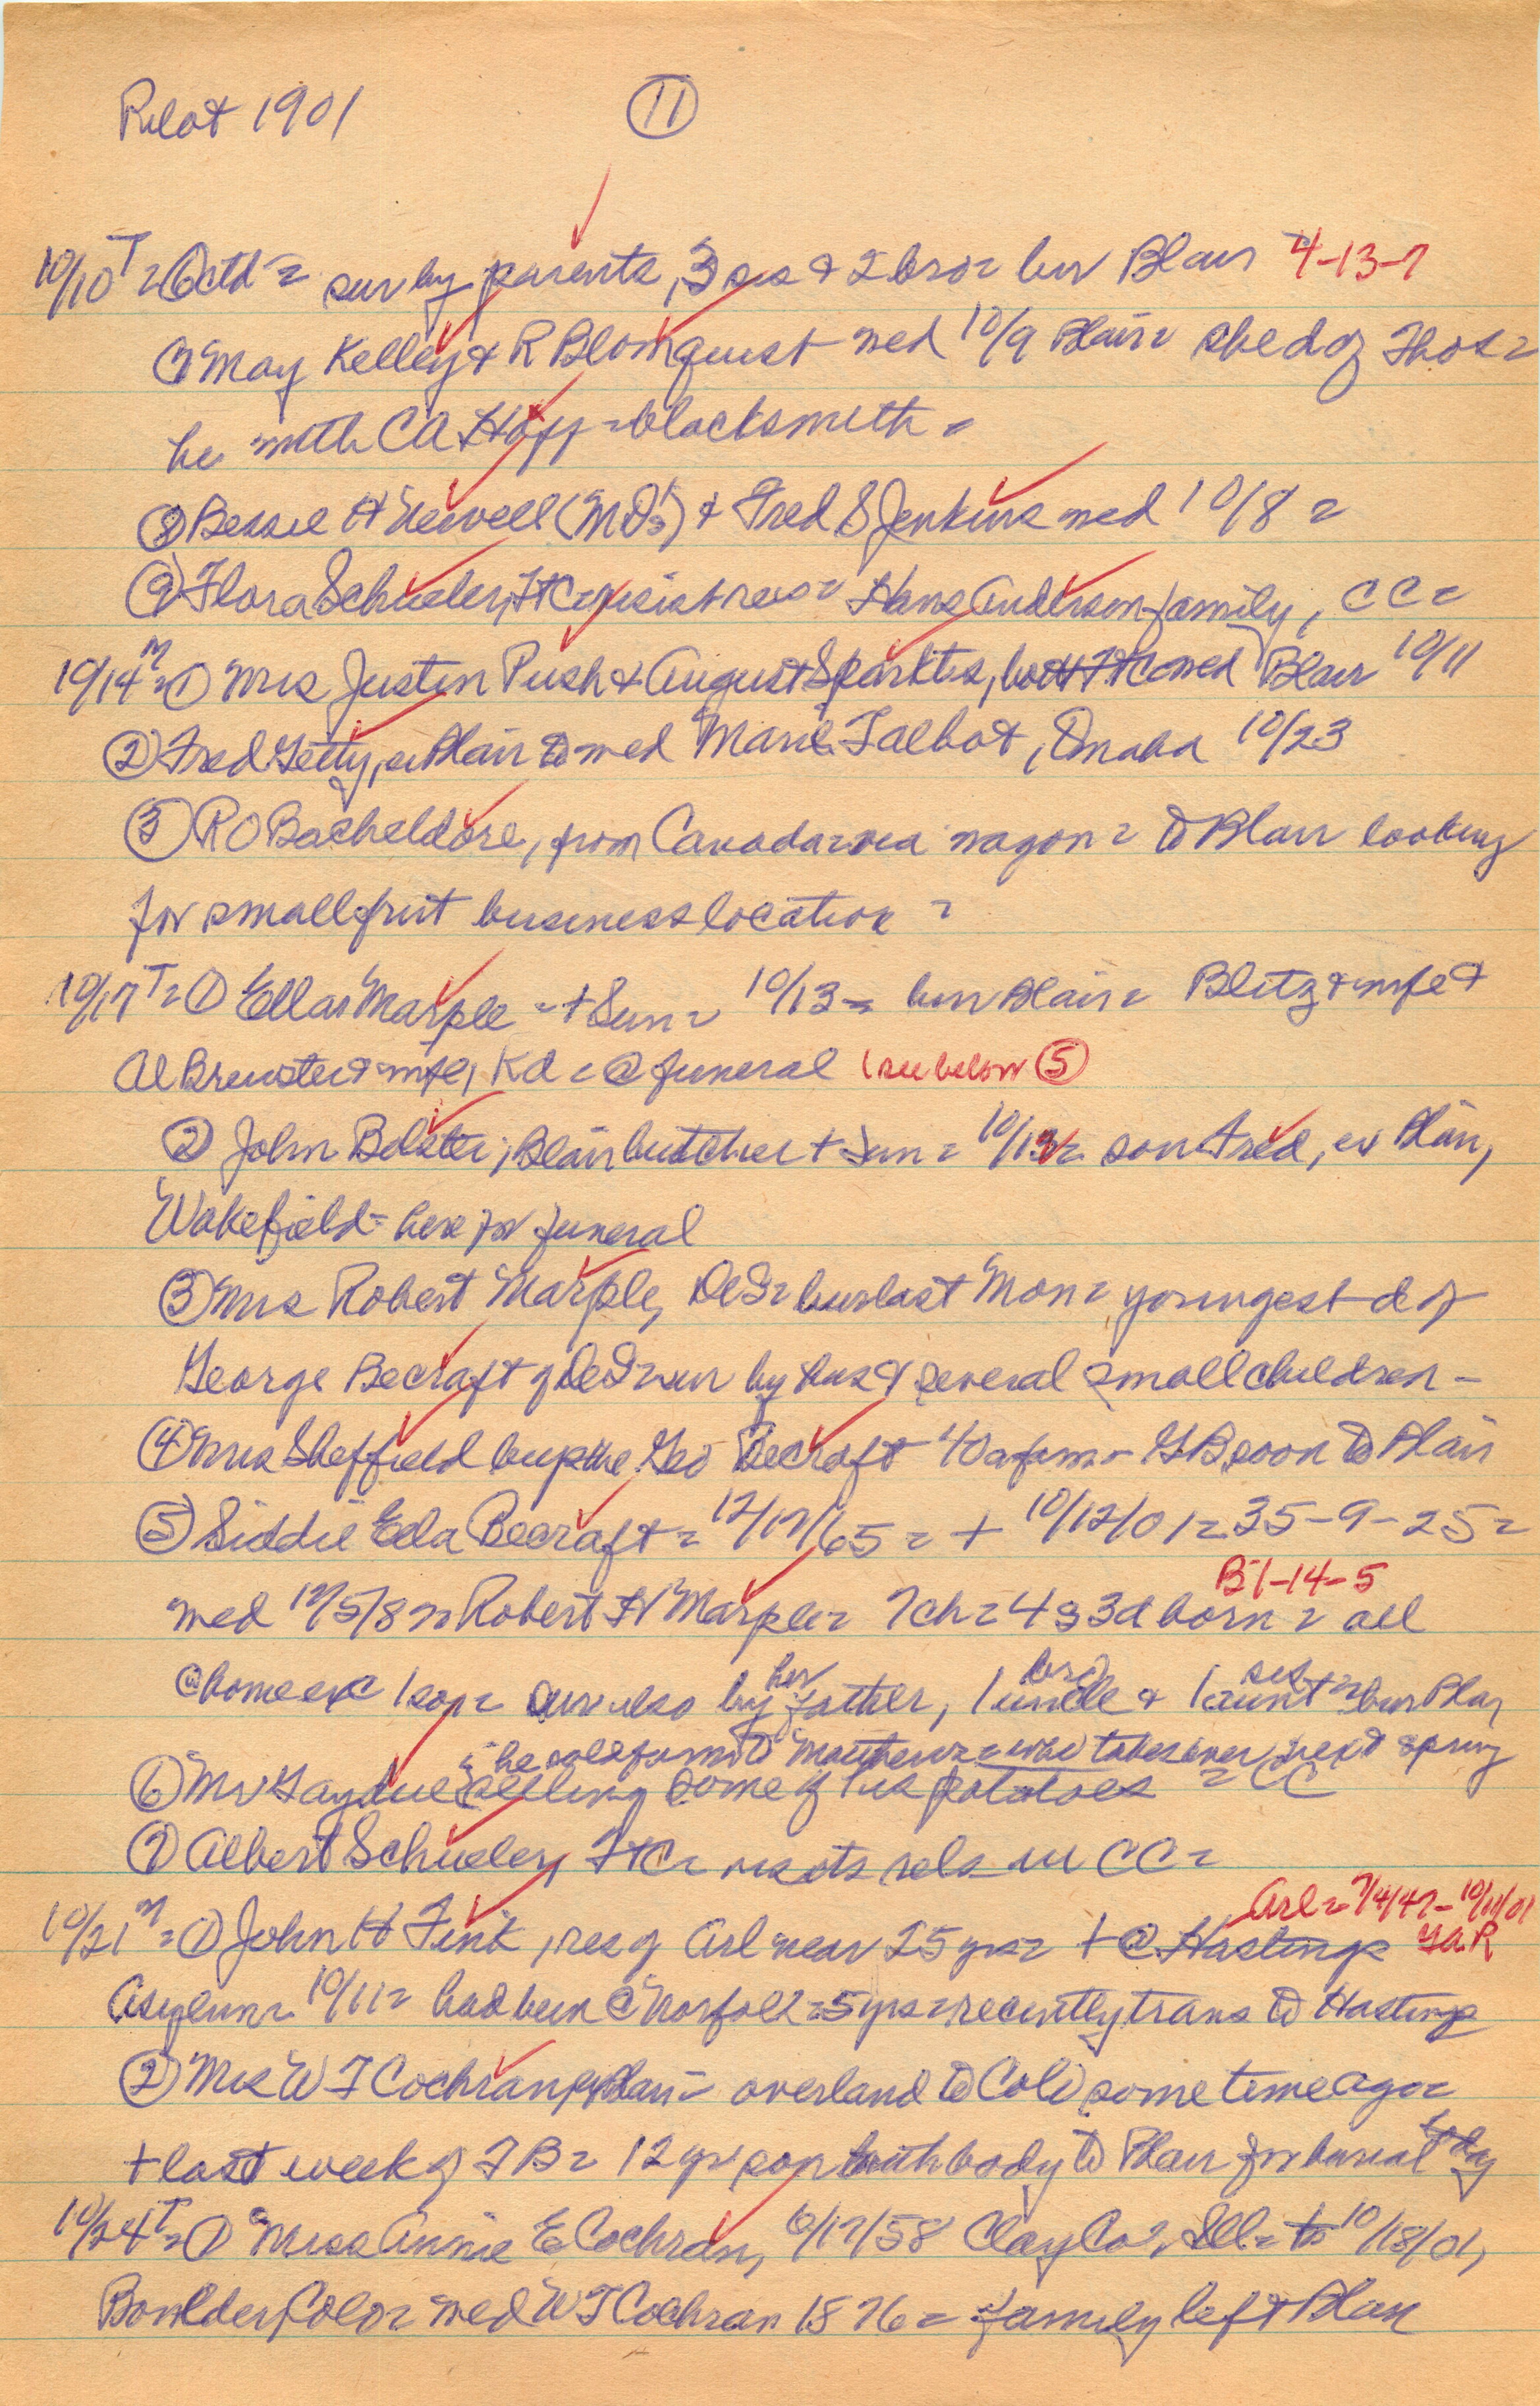 Pilot 1901 (11)
10/10 T = (6) ctd = sur by parents, 3 sis & 2 bro = bur Blair 4-13-7
(7) May Kelley & R Blomquist med 10/9 Blair = she d of Thos =
he with CA Hoff = blacksmith =
(8) Bessie H Newell (MD's) & Fred S Jenkins med 10/8 =
(9) Flora Schueler, FtC = visist rels = Hans Anderson family, CC =
10/14 M = (1) Mrs Justin Push & August Sparktis, both FtC med Blair 10/11
(2) Fred Getty, ex Blair to med Marie Talbot, Omaha 10/23
(3) RO Bacheldore, from Canada = via wagon = to Blair looking
for small fruit business location =
10/17 T = (1) Ella Marple = + Sun = 10/13 = bur Blair = Blitz & wife &
Al Brewster & wife, Kd = @ funeral (see below (5)
(2) John Bolster, Blair butcher + Sun = 10/13 = son Fred, ex Blair,
Wakefield = here for funeral
(3) Mrs Robert Marple, DeS = bur last Mon = youngest d of
George Becraft of DeS = sur by hus & several small children -
(4) Mrs Sheffield buys the Geo Becraft 40 a farm - GB soon to Blair
(5) Siddie Eda Becraft = 12/17/65 = + 10/12/01 = 35-9-25 =
med 12/5/8 Robert W Marple = 7 ch = 4 s 3 d born = all B1-14-5
@ home exc 1 son = sur also by her father, 1 uncle bro & 1 aunt sis = bur Blair
(6) Mr Gaydue selling some of his potatoes = CC
= he sells farm to Matthews = who takes over next spring
(7) Albert Schueler, FtC = visits rels in CC =
10/21 M = (1) John H Fink, res of Arl near 25 yrs = + @ Hastings Arl = 7/4/47 - 10/11/01 GAR
Asylum = 10/11 = had been @ Norfolk = 5 yrs = recently trans to Hastings
(2) Mrs W F Cochran, ex Blair = overland to Colo some time ago =
+ last week of TB = 12 yr son with body to Blair for burial today
10/24 T = (1) Miss Annie E Cochran, 6/17/58 Clay Co, Ill = to 10/18/01,
Boulder Colo = med W F Cochran 1876 = family left Blair